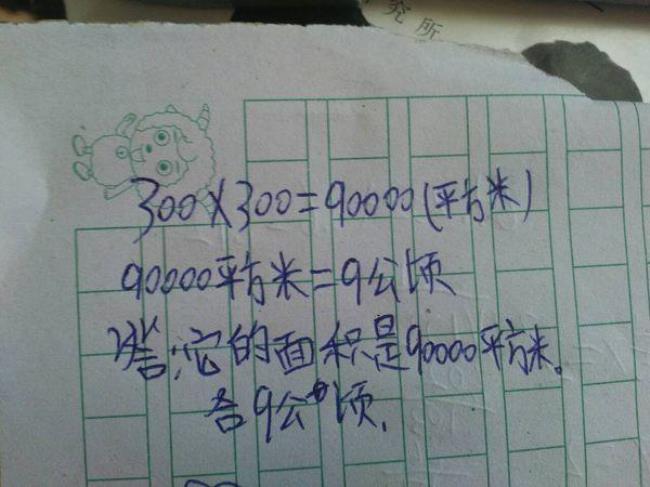 究所
300×300=90000(平方米)
90000平方米=9公顷
答:它的面积是90000平方米。
合9公顷.